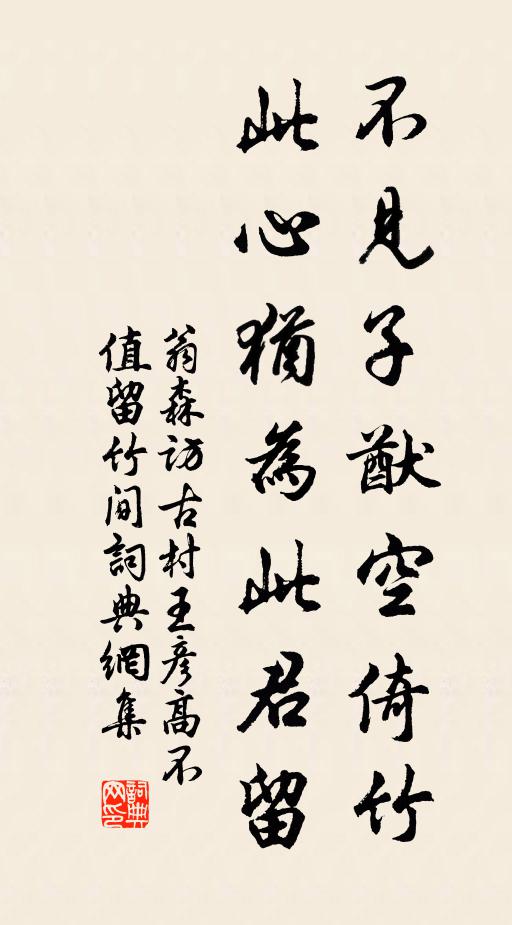 不見子猷空倚竹
此心猶為此君留
翁森訪古村王彥高不
值留竹間詞典網集
詞典网印